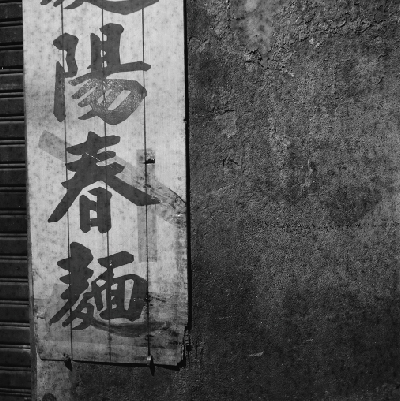 陽春麵